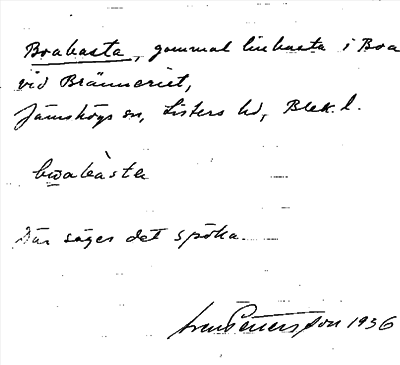 Boabasta, gammal linbasta i Boa
vid Bränneriet,
Jämshögs sn, Listers hd, Blek. l.
bwabàsta
Där säges det spöka.
Pettersson 1936